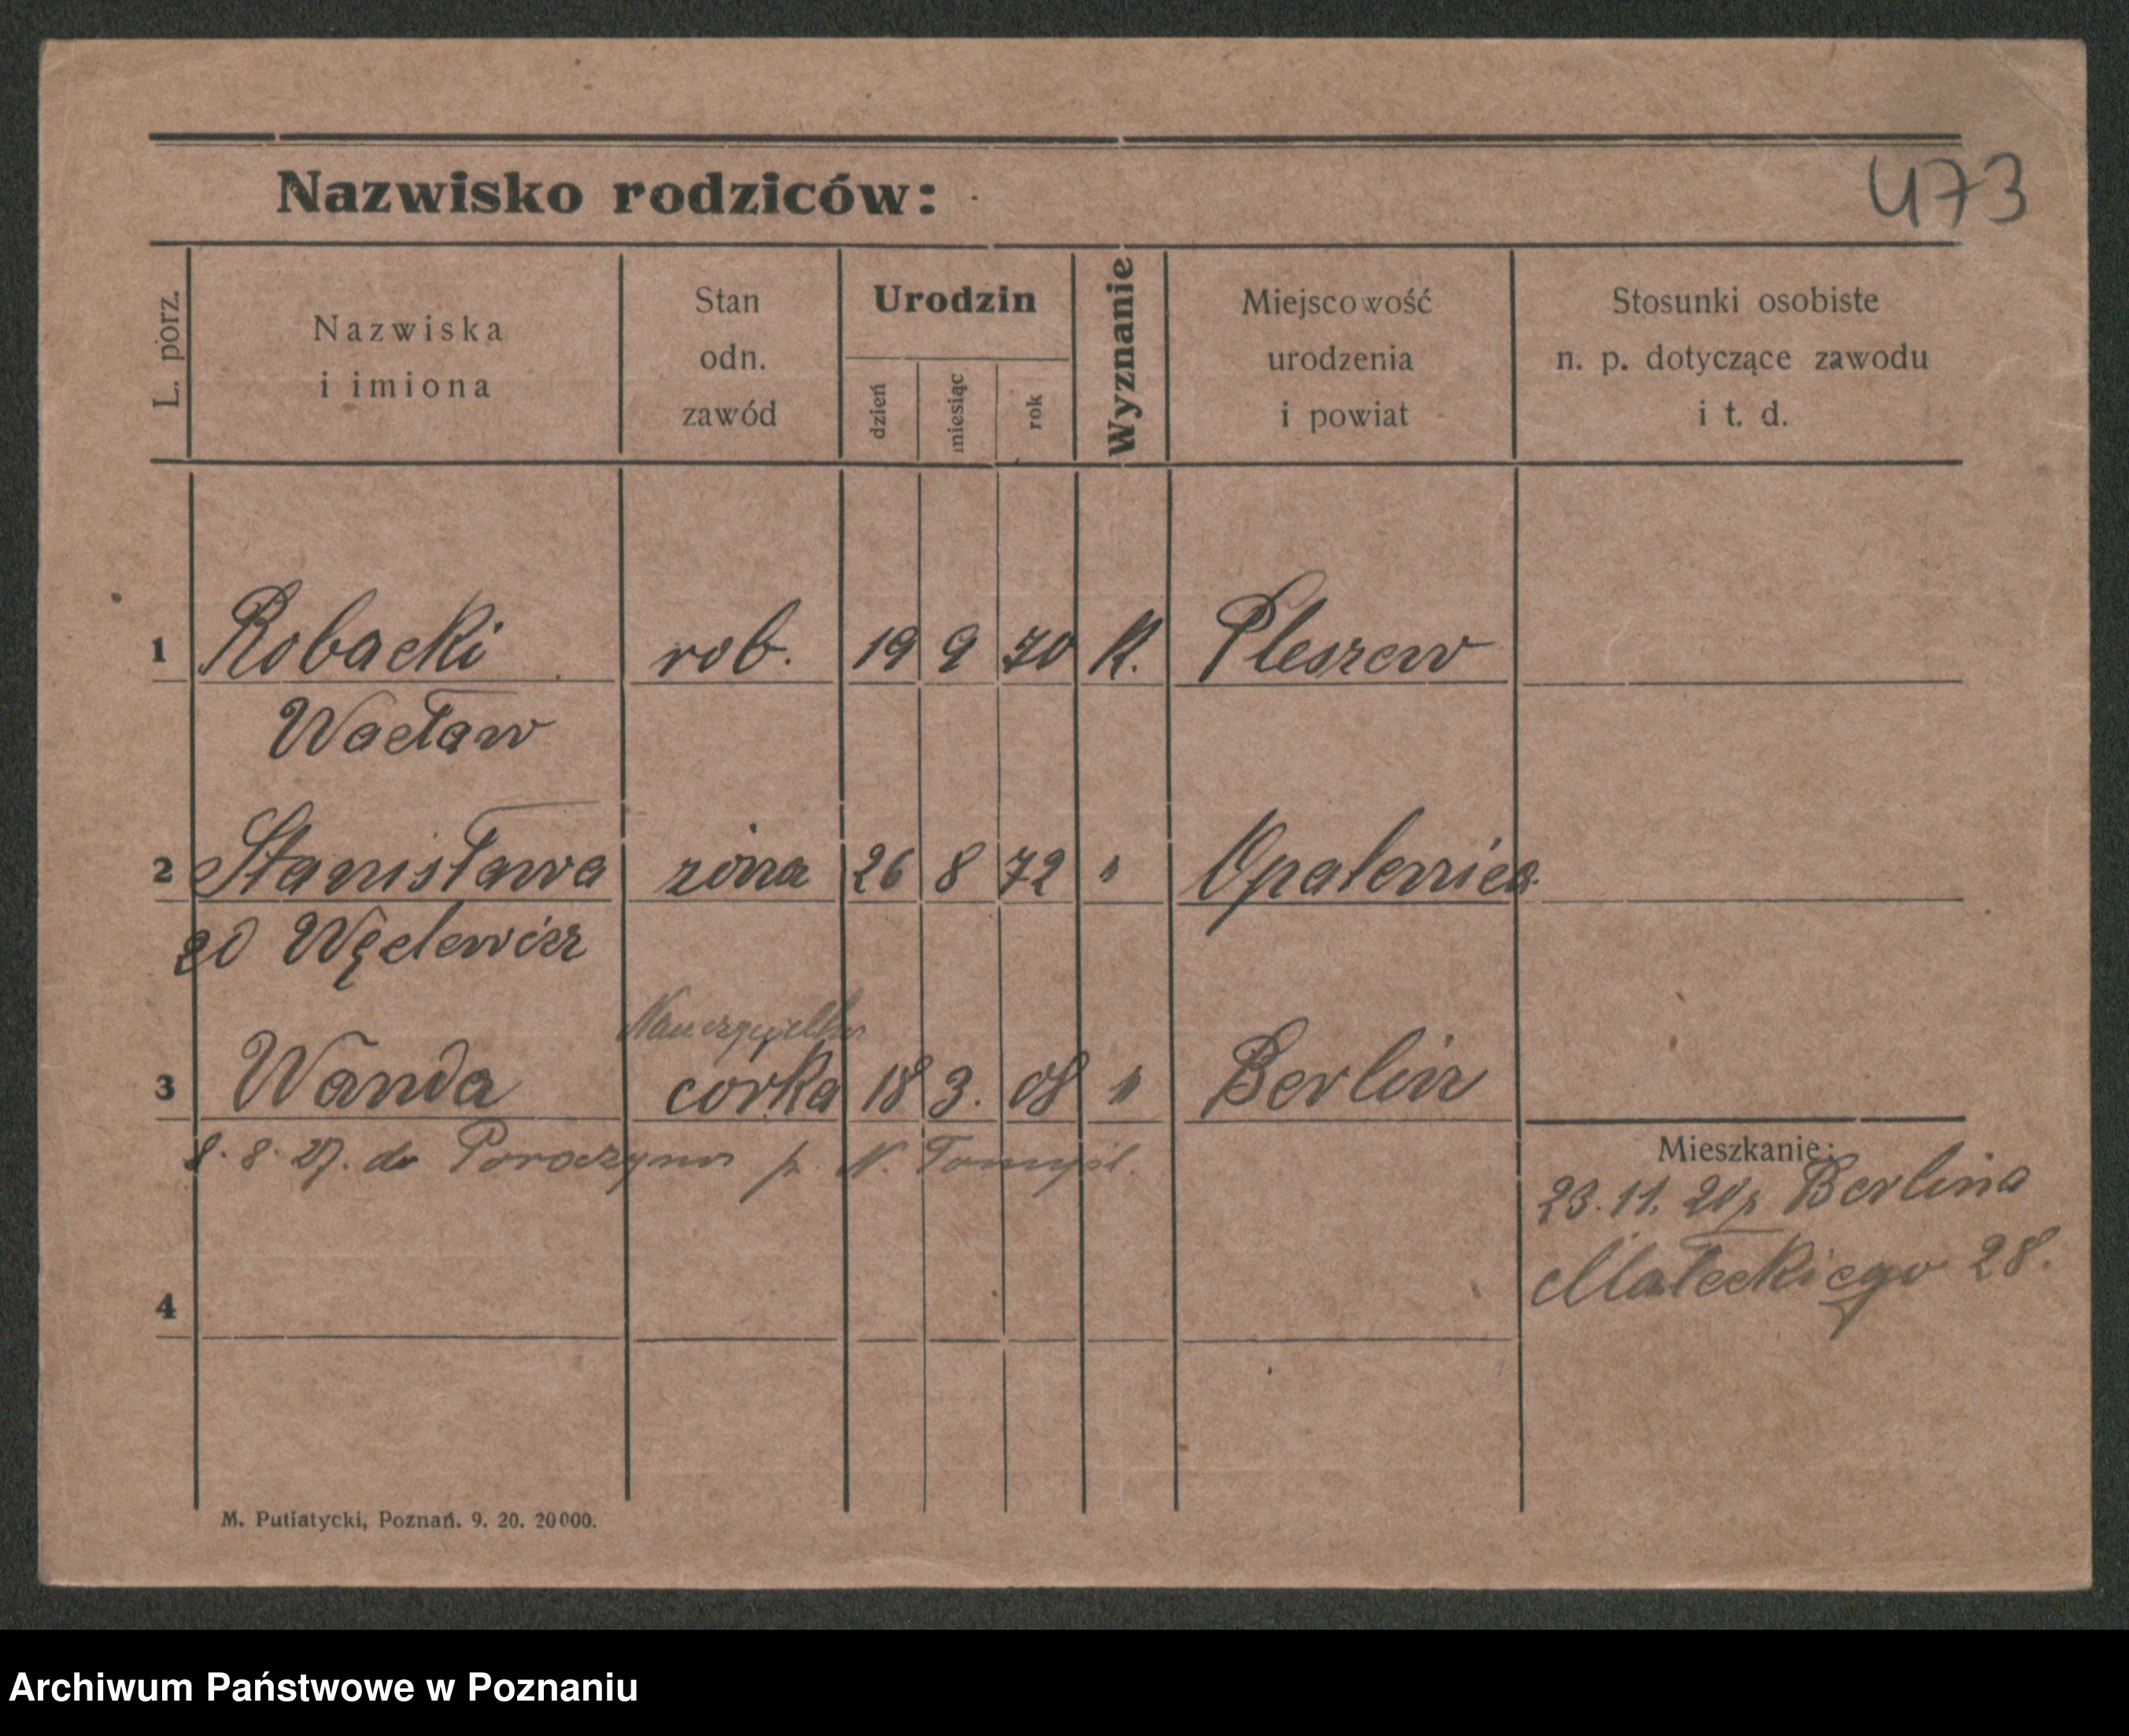 473
Nazwisko rodziców:
L. porz.
Nazwiska
i imiona
Stan
odn.
zawód
Urodzin
dzień
miesiąc
rok
Wyznanie
Miejscowość
urodzenia
i powiat
Stosunki osobiste
n. p. dotyczące zawodu
i t. d.
1 Robacki rob. 19 9 70 K. Pleszew
Wacław
2 Stanisława żona 26 8 72 " Opalenica
zd
Nauczycielka
3 Wanda corka 18 3. 08 " Berlin
8. 8. 27. do p. N. Tomyśl.
Mieszkanie:
23. 11. Berlina
Małeckiego 28.
4
M. Putiatycki, Poznań. 9. 20. 20000.
Archiwum Państwowe w Poznaniu